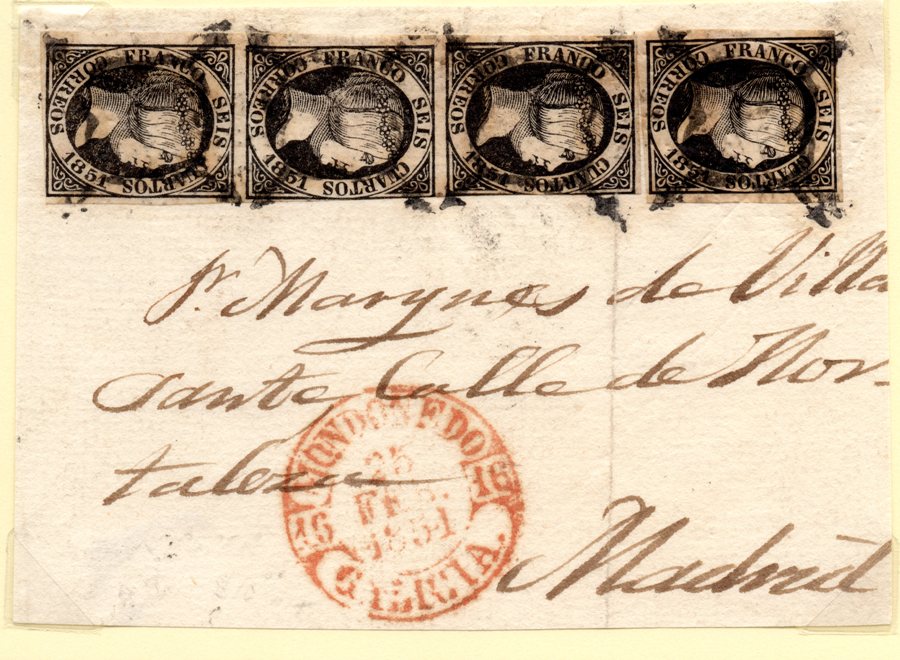 CORREOS FRANCO SEIS CUARTOS 1851
CORREOS FRANCO SEIS CUARTOS 1851
CORREOS FRANCO SEIS CUARTOS 1851
CORREOS FRANCO SEIS CUARTOS 1851
Sr. Marques de Villa
Sante Calle de Hor-
taleza
MONDOÑEDO
25
FEB.
1851
16 16
GALICIA.
Madrid